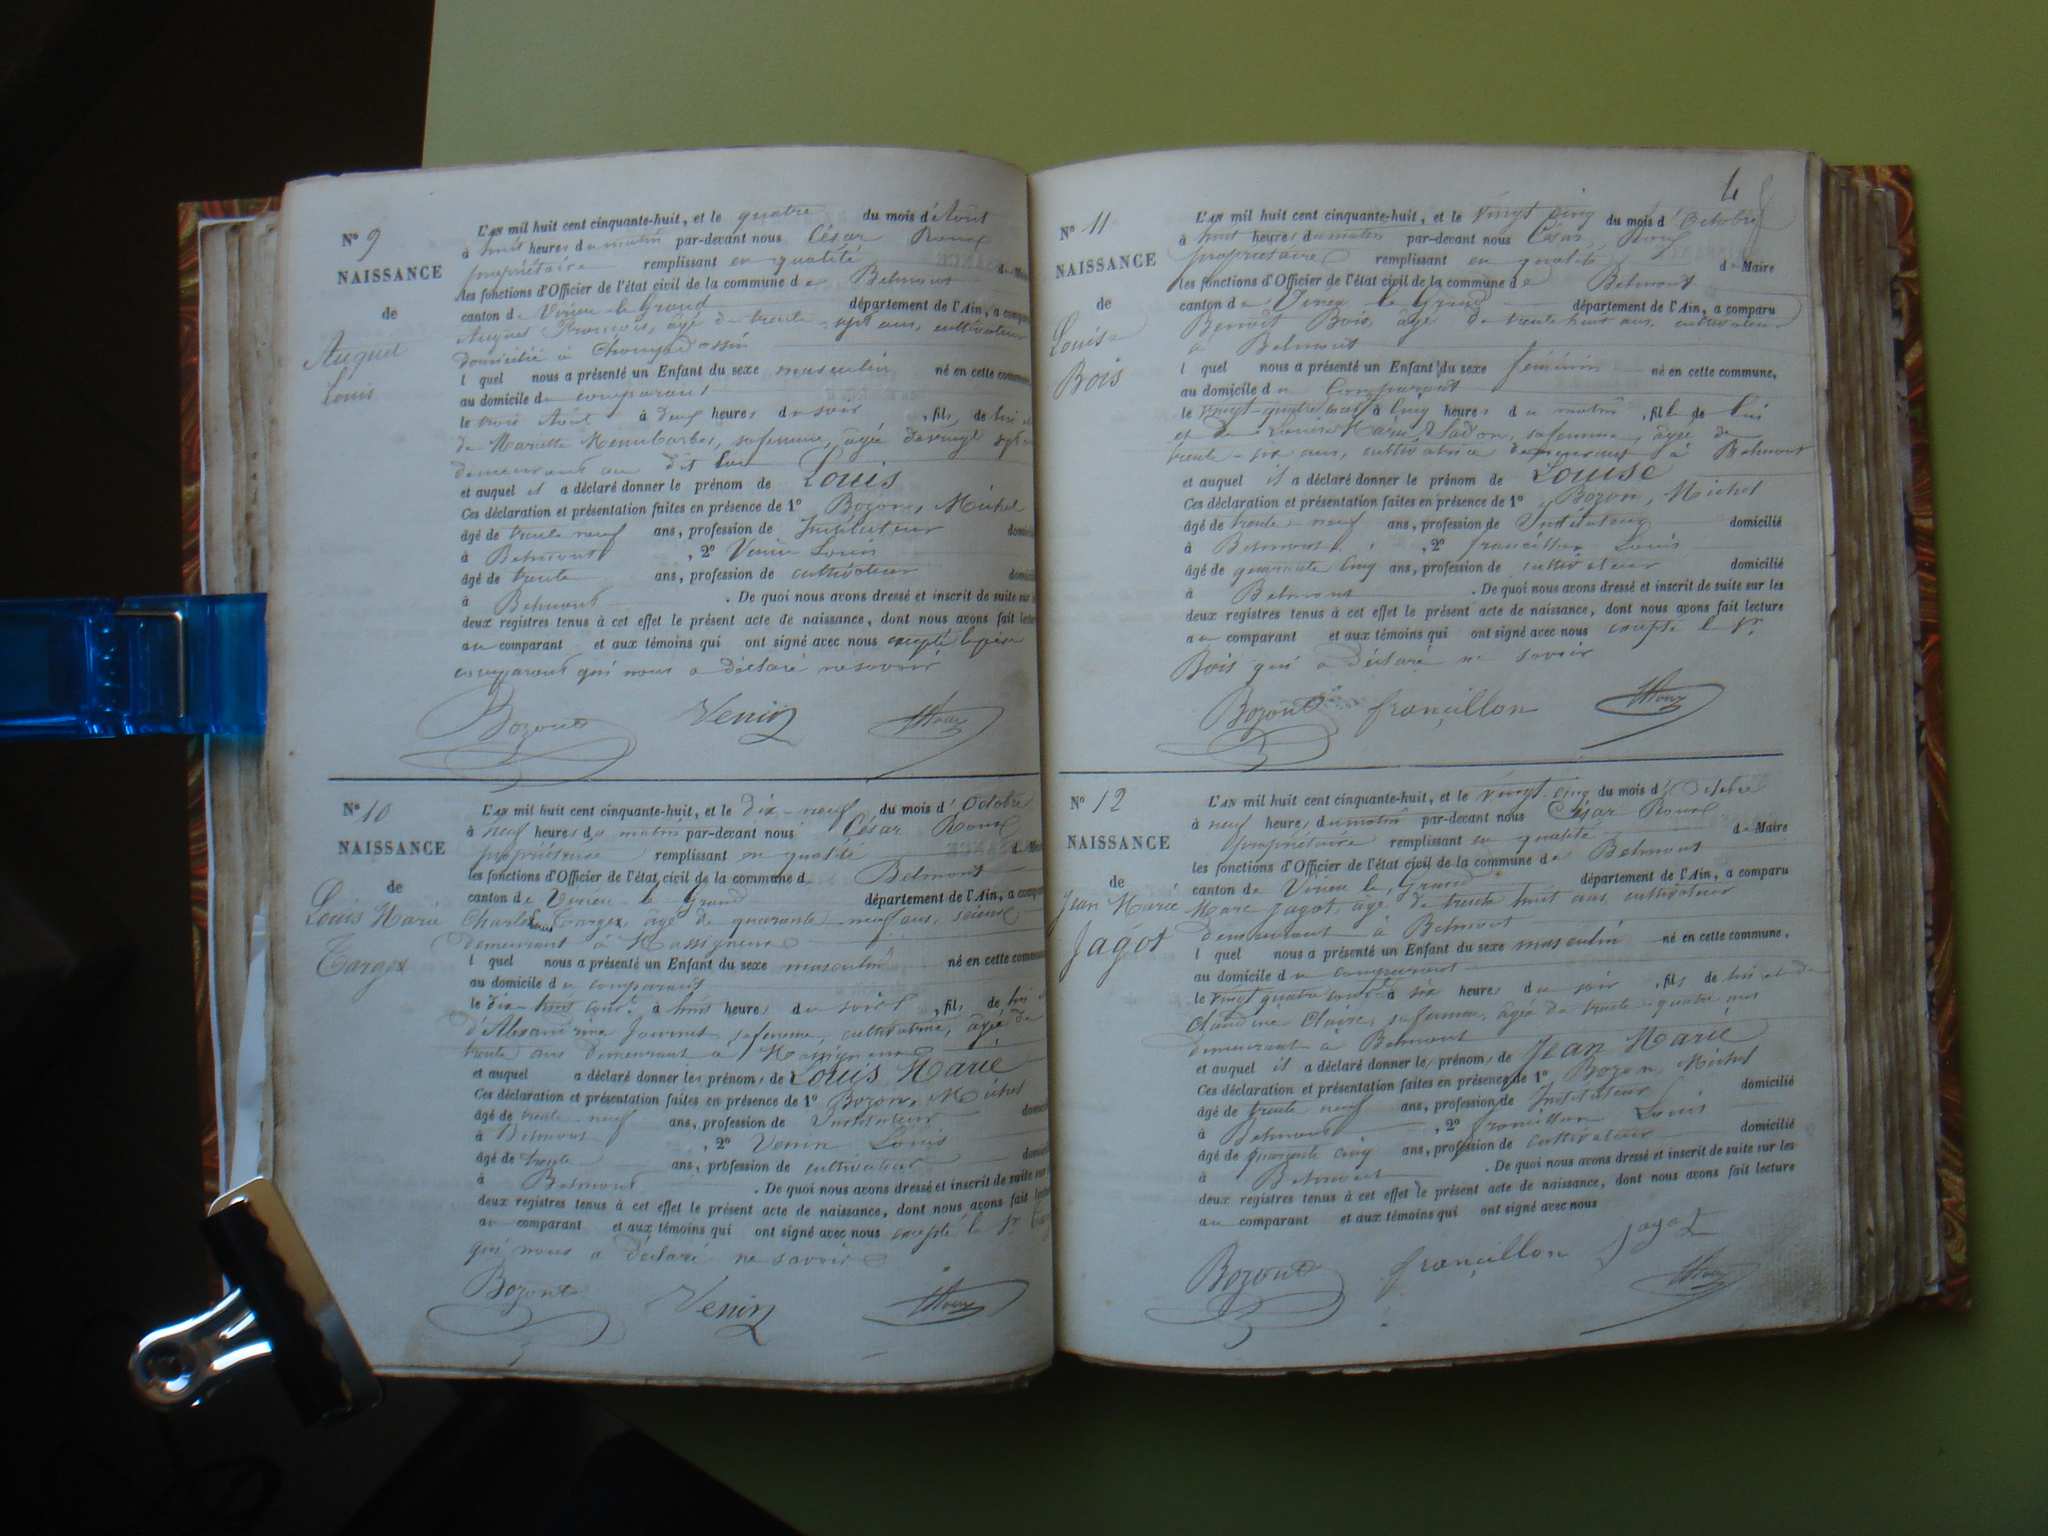 Nº 9
NAISSANCE
de
Auguet
Louis
L'AN mil huit cent cinquante-huit, et le quatre du mois d'Août
à huit heures du matin par-devant nous César Roux
propriétaire remplissant en qualité de Maire
les fonctions d'Officier de l'état civil de la commune de Belmont
canton de Virieu-le-Grand département de l'Ain, a comparu
François, âgé de trente-sept ans, cultivateur
domicilié à
lequel nous a présenté un Enfant du sexe masculin né en cette commune,
au domicile du comparant
le trois Août à deux heures du soir, fils de lui et
de Mariette sa femme, âgée de vingt sept ans
demeurant au dit lieu
et auquel il a déclaré donner le prénom de Louis
Ces déclaration et présentation faites en présence de 1º Bozon, Michel
âgé de trente neuf ans, profession de Instituteur domicilié
à Belmont, 2º Venin Louis
âgé de trente ans, profession de cultivateur domicilié
à Belmont. De quoi nous avons dressé et inscrit de suite sur les
deux registres tenus à cet effet le présent acte de naissance, dont nous avons fait lecture
au comparant et aux témoins qui ont signé avec nous excepté le père
comparant qui nous a déclaré ne savoir
Bozon Venin Roux
Nº 10
NAISSANCE
de
Louis Marie
Targex
L'AN mil huit cent cinquante-huit, et le dix-neuf du mois d'Octobre
à neuf heures du matin par-devant nous César Roux
propriétaire remplissant en qualité de Maire
les fonctions d'Officier de l'état civil de la commune de Belmont
canton de Virieu-le-Grand département de l'Ain, a comparu
Charles Louis Targex, âgé de quarante-neuf ans, scieur
demeurant à Massignieu
lequel nous a présenté un Enfant du sexe masculin né en cette commune
au domicile du comparant
le dix-huit cour.t à huit heures du soir, fils de lui et
d'Alexandrine Journet sa femme, cultivatrice, âgée de
trente ans demeurant à Massignieu
et auquel a déclaré donner les prénoms de Louis Marie
Ces déclaration et présentation faites en présence de 1º Bozon, Michel
âgé de trente-neuf ans, profession de Instituteur domicilié
à Belmont, 2º Venin Louis
âgé de trente ans, profession de cultivateur domicilié
à Belmont. De quoi nous avons dressé et inscrit de suite sur les
deux registres tenus à cet effet le présent acte de naissance, dont nous avons fait lecture
au comparant et aux témoins qui ont signé avec nous excepté le Sr
qui nous a déclaré ne savoir
Bozon Venin Roux
4
Nº 11
NAISSANCE
de
Louise
Bois
L'AN mil huit cent cinquante-huit, et le vingt cinq du mois d'Octobre
à huit heures du matin par-devant nous César Roux
propriétaire remplissant en qualité de Maire
les fonctions d'Officier de l'état civil de la commune de Belmont
canton de Virieu-le-Grand département de l'Ain, a comparu
Benoît Bois, âgé de trente huit ans, cultivateur
à Belmont
lequel nous a présenté un Enfant du sexe féminin né en cette commune,
au domicile du Comparant
le vingt-quatre cour.t à cinq heures du matin, fille de lui
et de Marie sa femme, âgée de
trente-six ans, cultivatrice demeurant à Belmont
et auquel il a déclaré donner le prénom de Louise
Ces déclaration et présentation faites en présence de 1º Bozon, Michel
âgé de trente-neuf ans, profession de Instituteur domicilié
à Belmont, 2º françillon Louis
âgé de quarante cinq ans, profession de cultivateur domicilié
à Belmont. De quoi nous avons dressé et inscrit de suite sur les
deux registres tenus à cet effet le présent acte de naissance, dont nous avons fait lecture
au comparant et aux témoins qui ont signé avec nous excepté le Sr
Bois qui a déclaré ne savoir
Bozon françillon Roux
Nº 12
NAISSANCE
de
Jean Marie
Jagot
L'AN mil huit cent cinquante-huit, et le vingt-cinq du mois d'Octobre
à neuf heures du matin par-devant nous César Roux
propriétaire remplissant en qualité de Maire
les fonctions d'Officier de l'état civil de la commune de Belmont
canton de Virieu-le-Grand département de l'Ain, a comparu
Marc Jagot, âgé de trente huit ans, cultivateur
demeurant à Belmont
lequel nous a présenté un Enfant du sexe masculin né en cette commune,
au domicile du comparant
le vingt quatre cour.t à six heures du soir, fils de lui et de
Claudine Claire, sa femme, âgée de trente-quatre ans
demeurant à Belmont
et auquel il a déclaré donner les prénoms de Jean Marie
Ces déclaration et présentation faites en présence de 1º Bozon, Michel
âgé de trente neuf ans, profession de Instituteur domicilié
à Belmont, 2º françillon Louis
âgé de quarante cinq ans, profession de cultivateur domicilié
à Belmont. De quoi nous avons dressé et inscrit de suite sur les
deux registres tenus à cet effet le présent acte de naissance, dont nous avons fait lecture
au comparant et aux témoins qui ont signé avec nous
Bozon françillon Jagot Roux